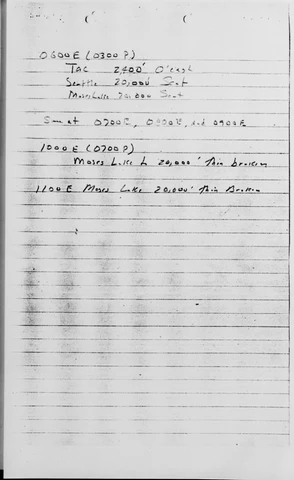 0600E (0300P)
TAC 2,400' O'cast
Seattle 20,000' Scat
Moses Lake 20,000 Scat
Same at 0700E, 0800E, and 0900E
1000E (0700P)
Moses Lake 20,000' thin broken
1100E Moses Lake 20,000' thin Broken